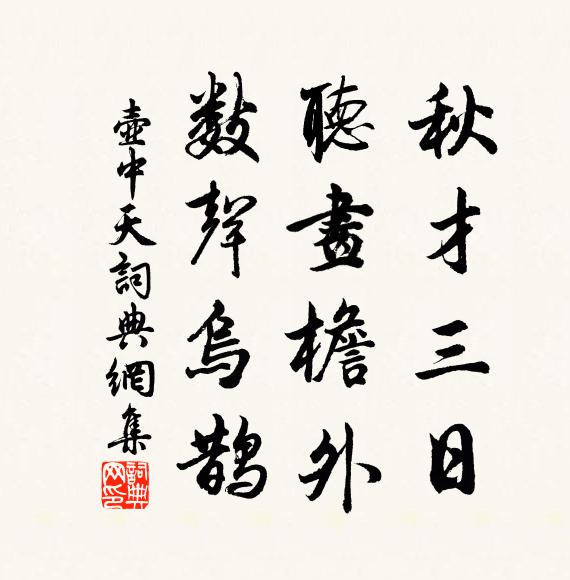 秋才三日
聽畫檐外
數聲烏鵲
壺中天詞典網集
詞典网印